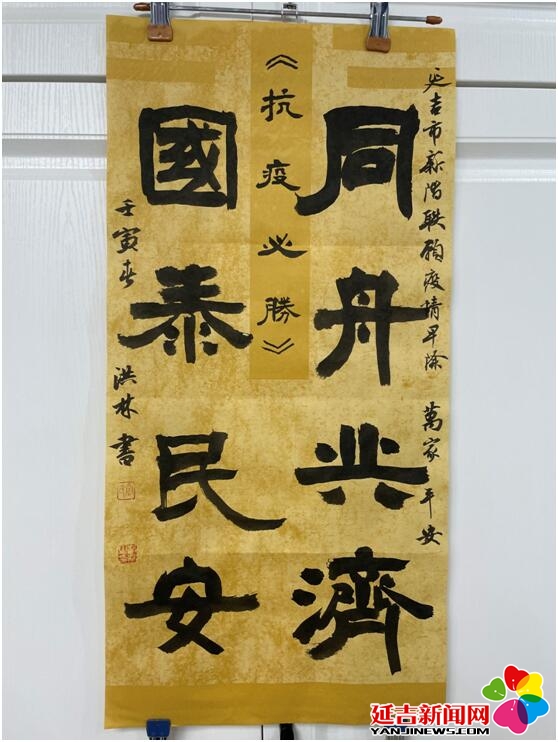 延吉市新階联願疫情早除 萬家平安
同舟共濟
《抗疫必勝》
國泰民安
壬寅春 洪林書
延吉新闻网
WWW.YANJINEWS.COM